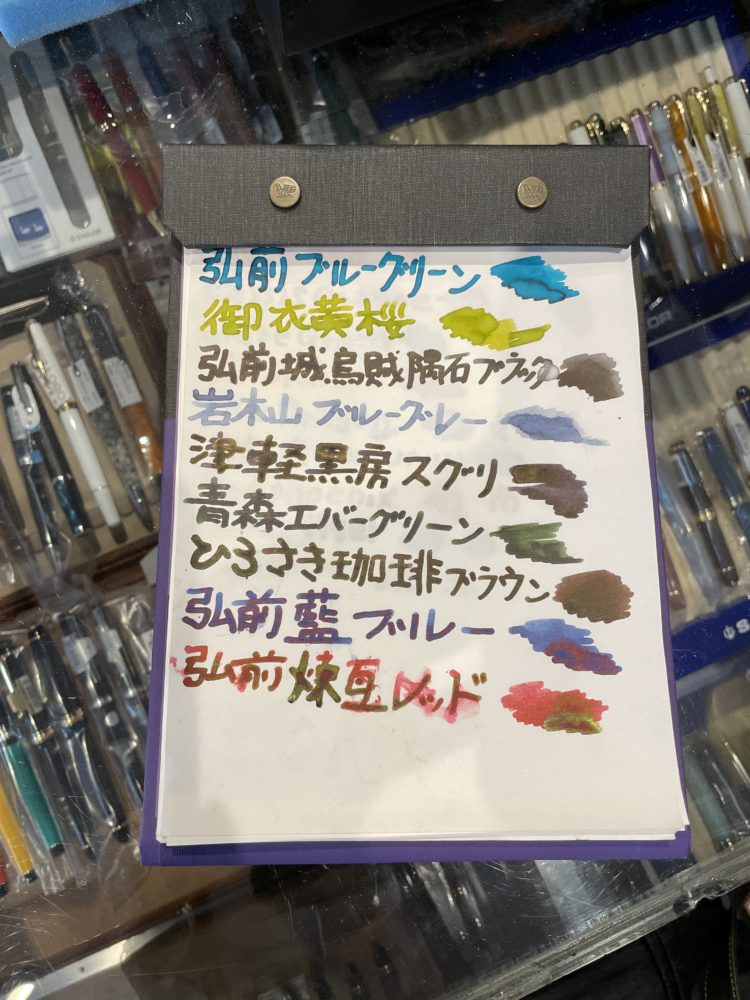 弘前ブルーグリーン
御衣黄桜
弘前城烏賊隕石ブラック
岩木山ブルーグレー
津軽黒房スグリ
青森エバーグリーン
ひろさき珈琲ブラウン
弘前藍ブルー
弘前煉瓦レッド